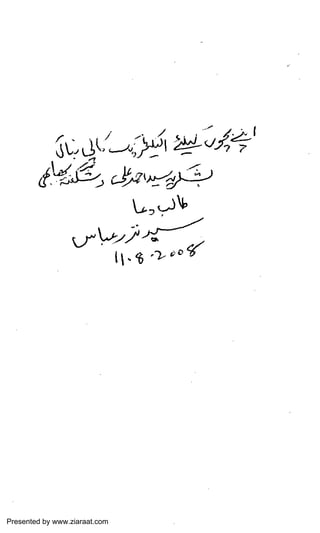 اپنے بچوں کیلئے اسکین کی بنائی
بشکریہ سید احمد علی
طالب دعا
سید نذر عباس
11.8.2008
Presented by www.ziaraat.com